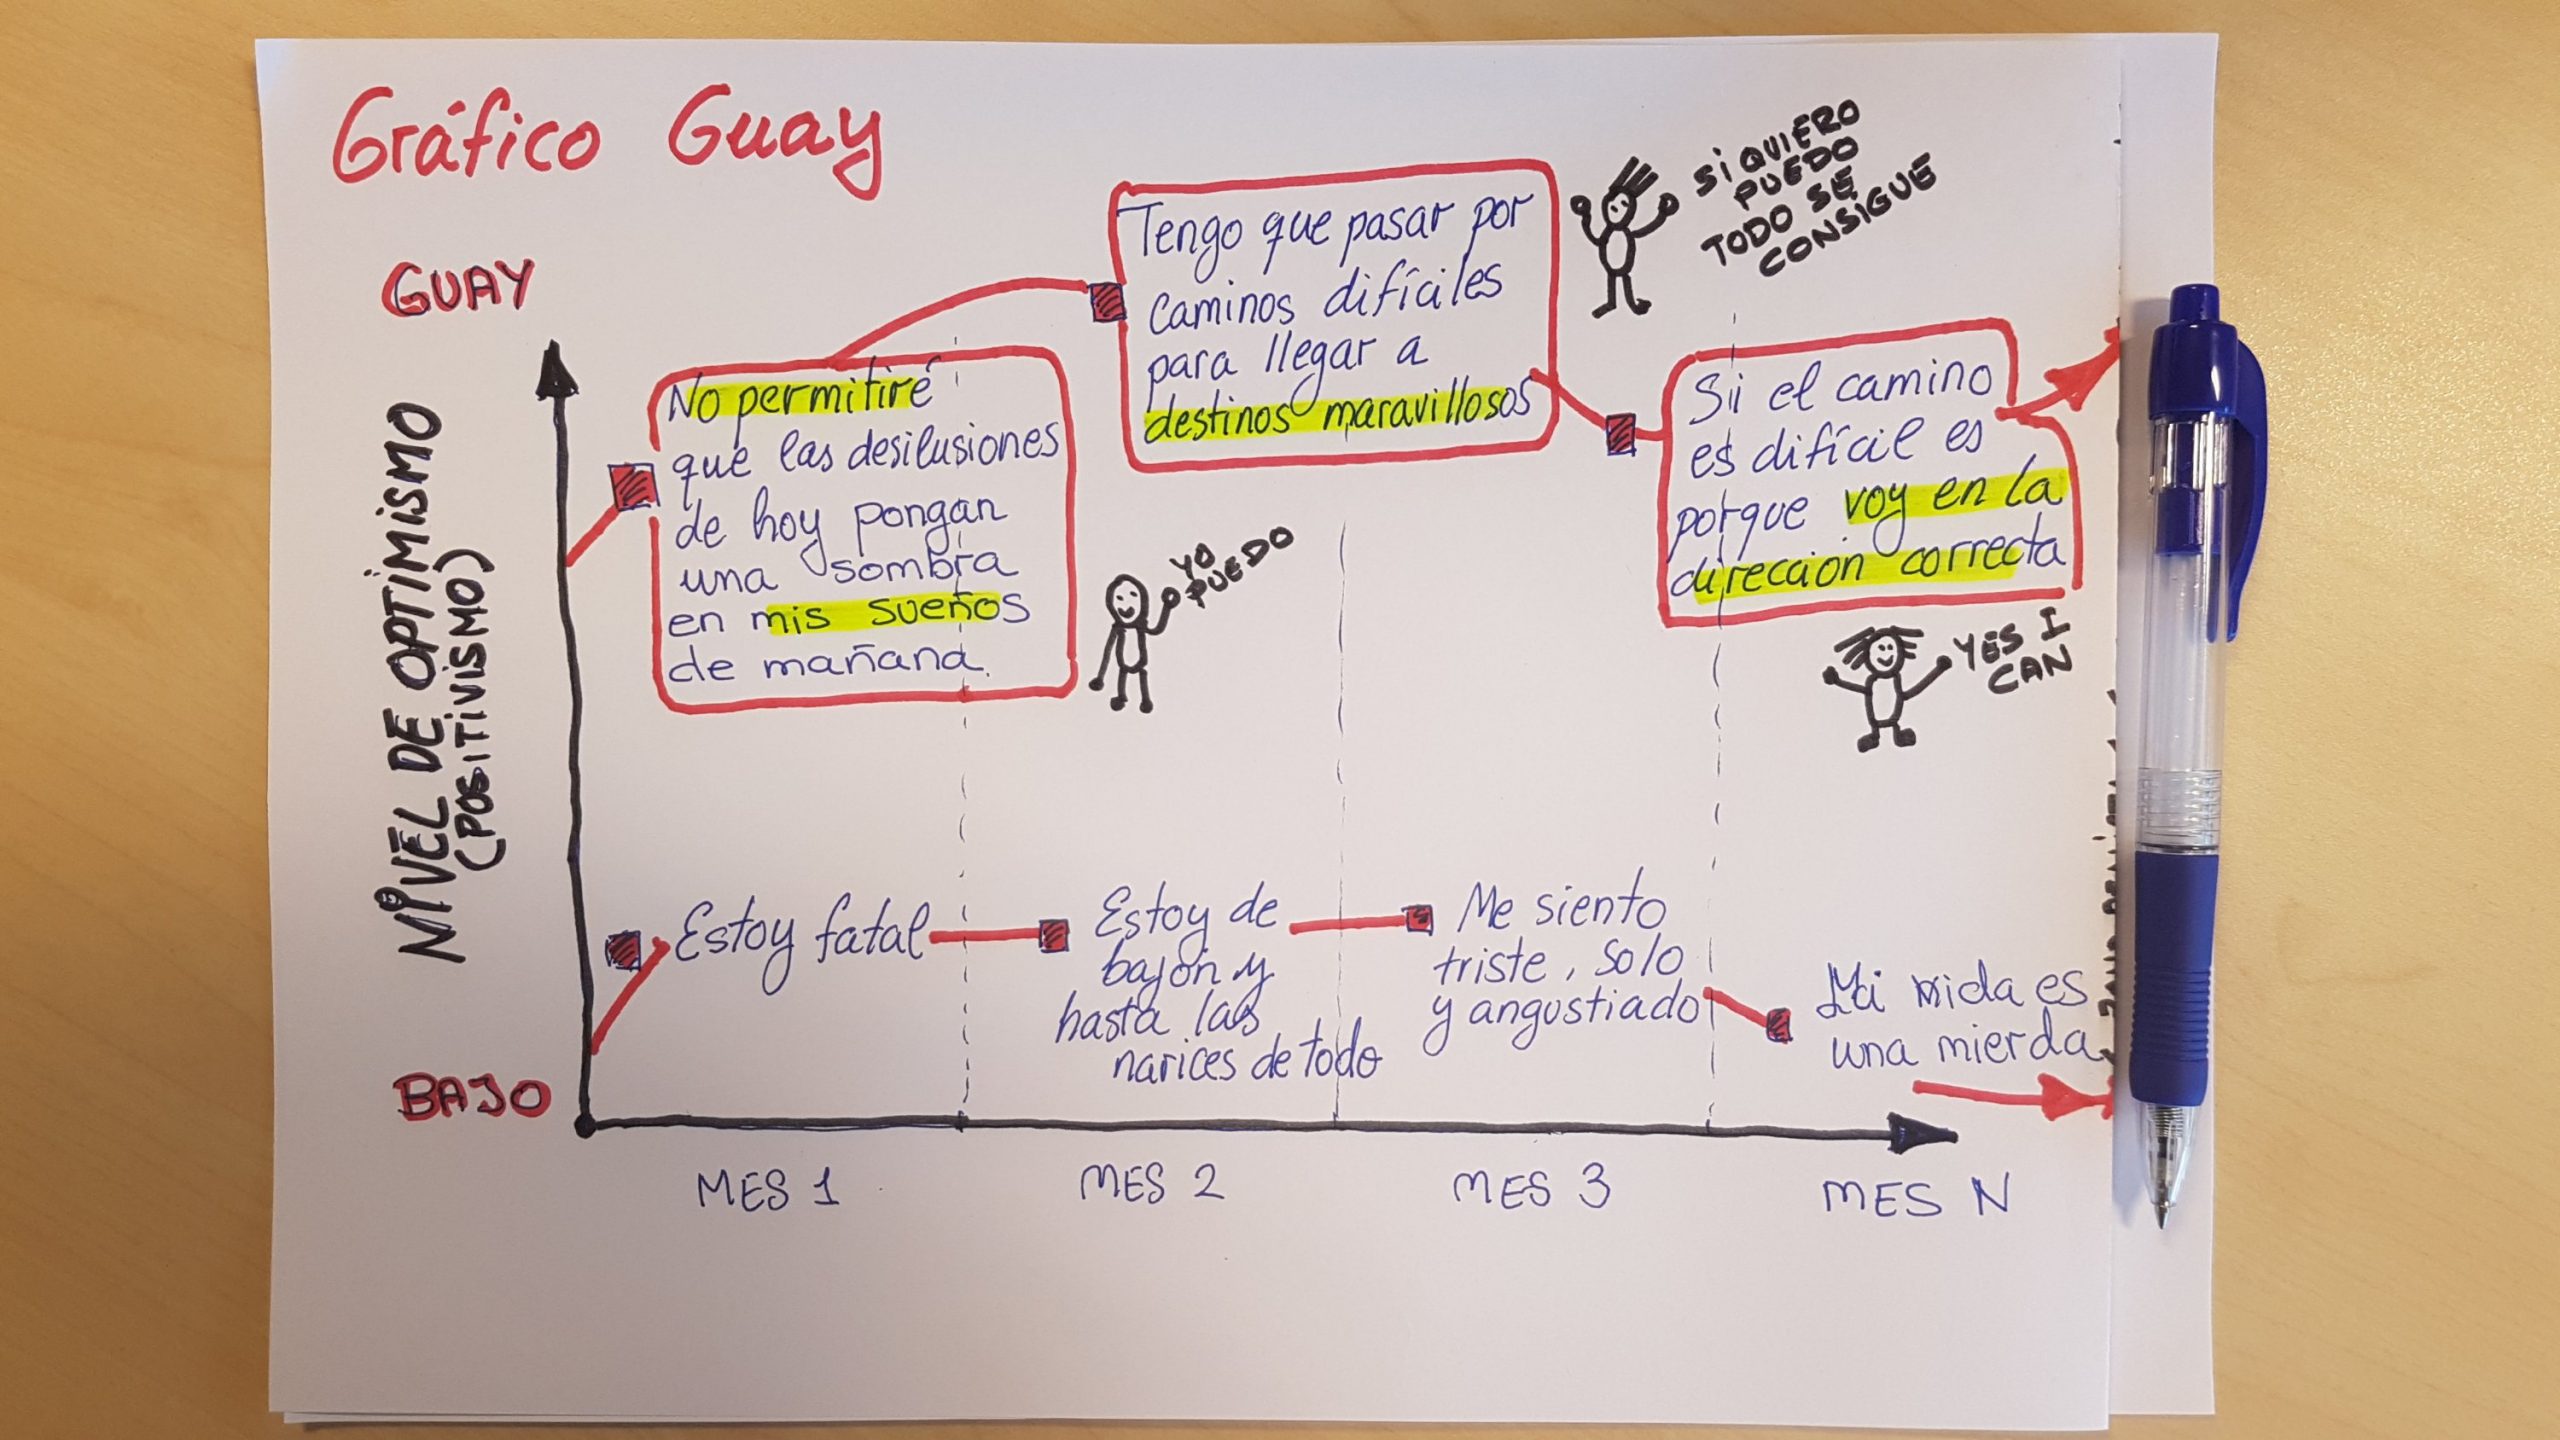 Gráfico Guay
GUAY
NIVEL DE OPTIMISMO
(POSITIVISMO)
BAJO
No permitiré
que las desilusiones
de hoy pongan
una sombra
en mis sueños
de mañana.
Tengo que pasar por
caminos difíciles
para llegar a
destinos maravillosos
SI QUIERO
PUEDO
TODO SE
CONSIGUE
Si el camino
es difícil es
porque voy en la
dirección correcta
YO
PUEDO
YES I
CAN
Estoy fatal
Estoy de
bajón y
hasta las
narices de todo
Me siento
triste, solo
y angustiado
Mi vida es
una mierda
MES 1
MES 2
MES 3
MES N